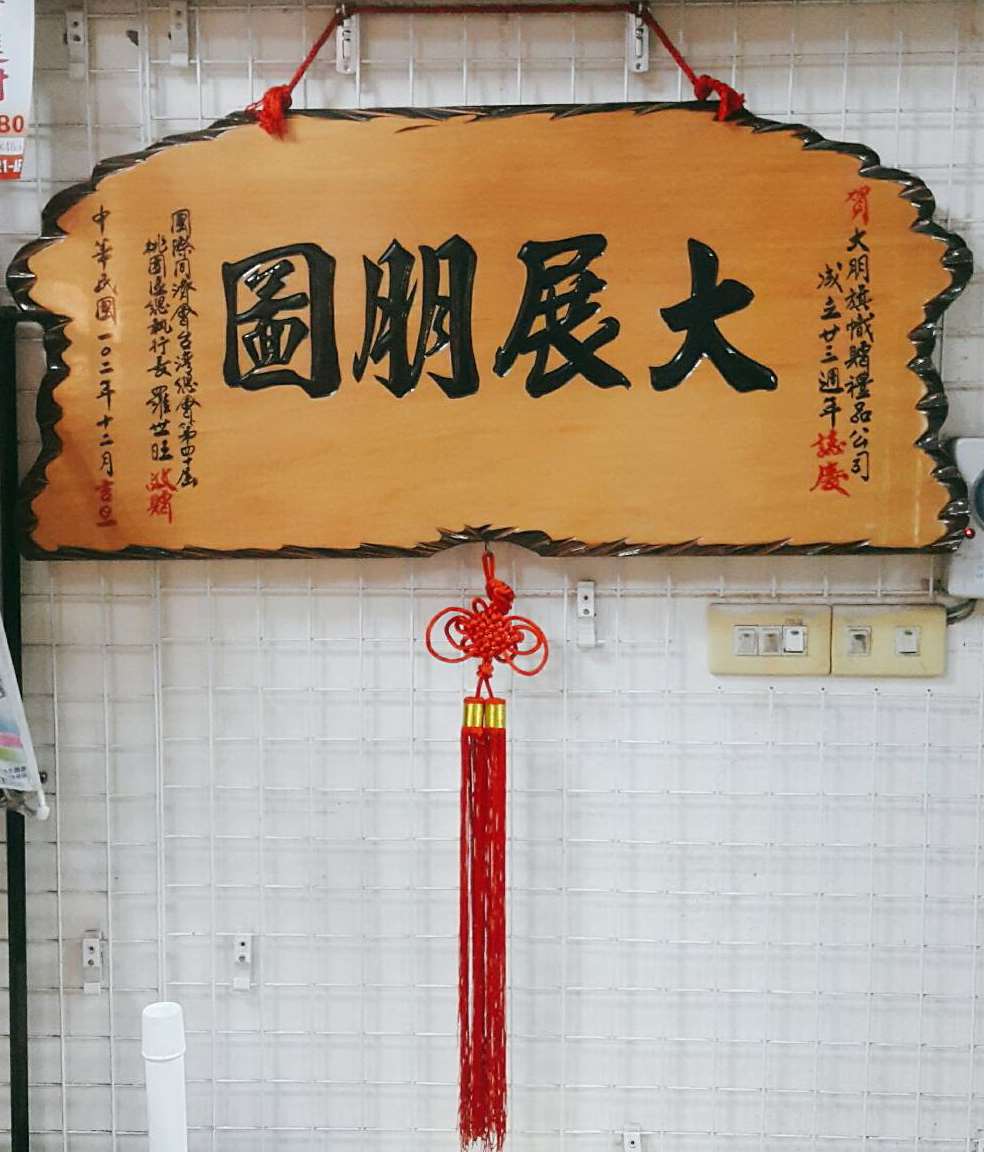 賀 大朋旗幟贈禮品公司
成立廿三週年誌慶
大展朋圖
國際同濟會台灣總會第四十屆
桃園區總執行長 羅世旺 敬贈
中華民國一〇二年十二月吉旦
80